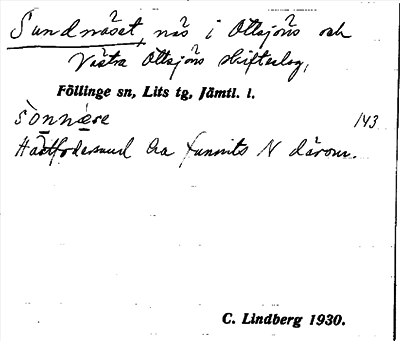 Sundnäset, näs i Ottsjöns och
Västra Ottsjöns skifteslag,
Föllinge sn, Lits tg, Jämtl. l.
sònnǽse 143
ha funnits N därom.
C. Lindberg 1930.